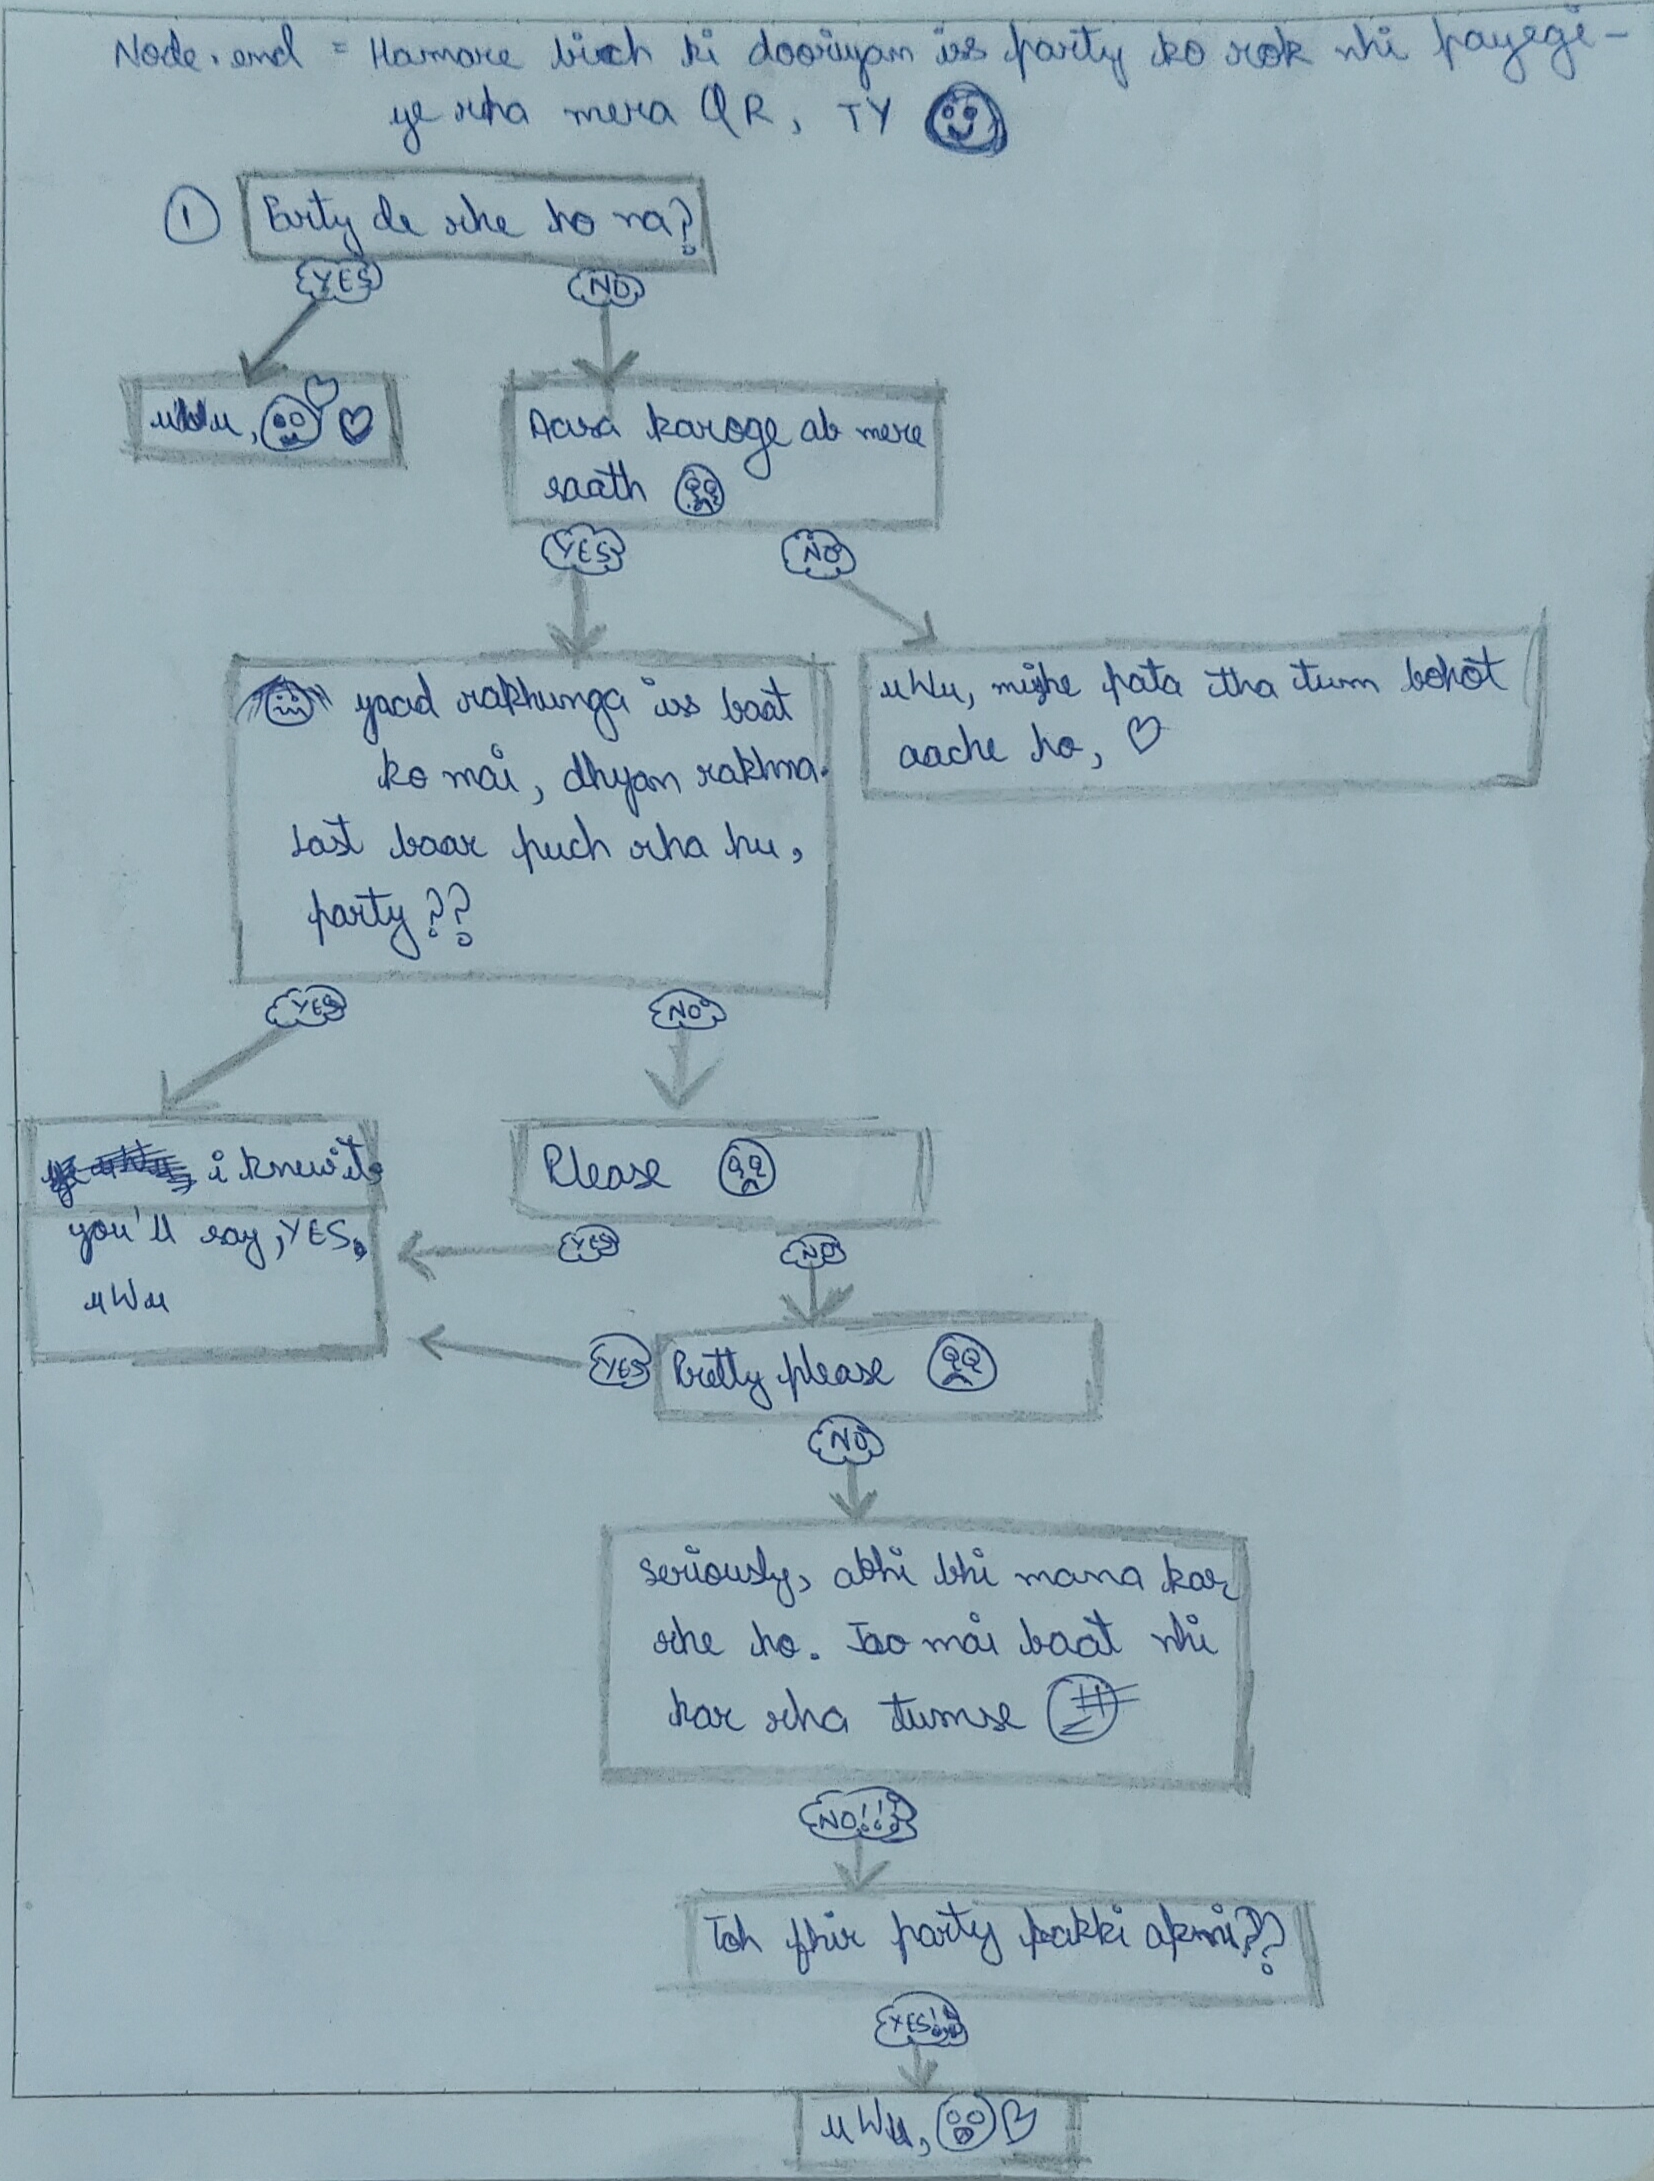 Node.end = Hamare bich ki dooriyan iss party ko rok nhi payegi -
ye rha mera QR, TY
① Party de rhe ho na?
YES
NO
uWu,
Aasa karoge ab mere
saath
YES
NO
yaad rakhunga iss baat
ko mai, dhyan rakhna.
Last baar puch rha hu,
party??
uWu, mujhe pata tha tum bohot
aache ho,
YES
NO
i knew it,
you'll say, YES,
uWu
Please
YES
NO
YES
Pretty please
NO
Seriously, abhi bhi mana kar
rhe ho. Jao mai baat nhi
kar rha tumse
NO!!!
Toh fhir party pakki apni??
YES!!
uWu,